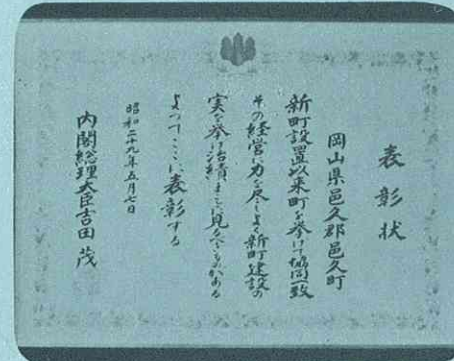 表彰状
岡山県邑久郡邑久町
新町設置以来町を挙げて協同一致
その経営に力を尽しよく新町建設の
実を挙げ治績まことに見るべきものがある
よってここに表彰する
昭和二十九年五月七日
内閣総理大臣吉田茂